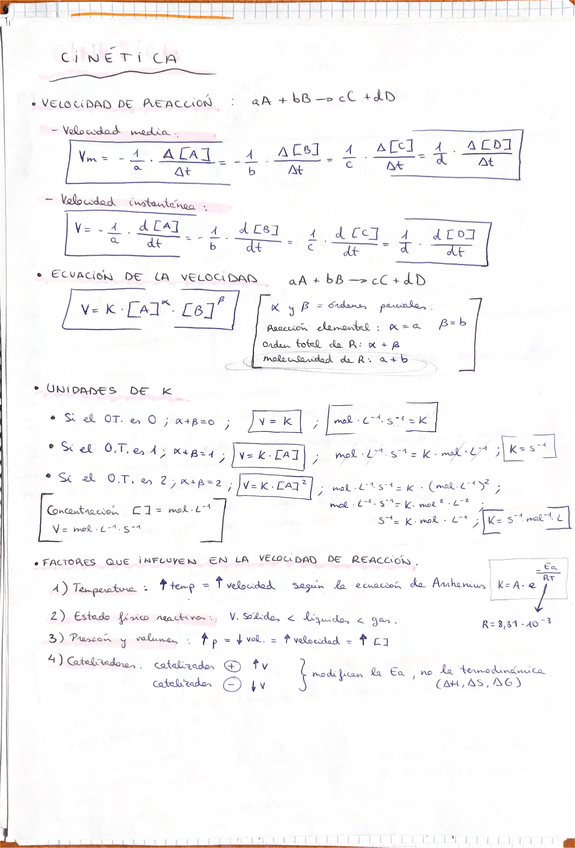 CINÉTICA
• VELOCIDAD DE REACCIÓN : aA + bB → cC + dD
- Velocidad media:
Vm = - 1/a · Δ[A]/Δt = - 1/b · Δ[B]/Δt = 1/c · Δ[C]/Δt = 1/d · Δ[D]/Δt
- Velocidad instantánea:
V = - 1/a · d[A]/dt = - 1/b · d[B]/dt = 1/c · d[C]/dt = 1/d · d[D]/dt
• ECUACIÓN DE LA VELOCIDAD aA + bB → cC + dD
V = K · [A]^α · [B]^β
α y β = órdenes parciales.
Reacción elemental : α = a β = b
Orden total de R : α + β
molecularidad de R : a + b
• UNIDADES DE K
• Si el OT. es 0 ; α+β=0 ; V = K ; mol · L⁻¹ · s⁻¹ = K
• Si el O.T. es 1 ; α+β=1 ; V = K · [A] ; mol · L⁻¹ · s⁻¹ = K · mol · L⁻¹ ; K = s⁻¹
• Si el O.T. es 2 ; α+β=2 ; V = K · [A]² ; mol · L⁻¹ · s⁻¹ = K · (mol · L⁻¹)² ;
mol · L⁻¹ · s⁻¹ = K · mol² · L⁻² ;
s⁻¹ = K · mol · L⁻¹ ; K = s⁻¹ mol⁻¹ · L
Concentración [] = mol · L⁻¹
V = mol · L⁻¹ · s⁻¹
• FACTORES QUE INFLUYEN EN LA VELOCIDAD DE REACCIÓN.
1) Temperatura : ↑ temp = ↑ velocidad según la ecuación de Arrhenius K = A · e^(-Ea/RT)
R = 8,31 · 10⁻³
2) Estado físico reactivos : V. sólidos < líquidos < gas.
3) Presión y volumen : ↑ p = ↓ vol. = ↑ velocidad = ↑ []
4) Catalizadores : catalizador ⊕ ↑ v
catalizador ⊖ ↓ v
} modifican la Ea , no la termodinámica
(ΔH, ΔS, ΔG)